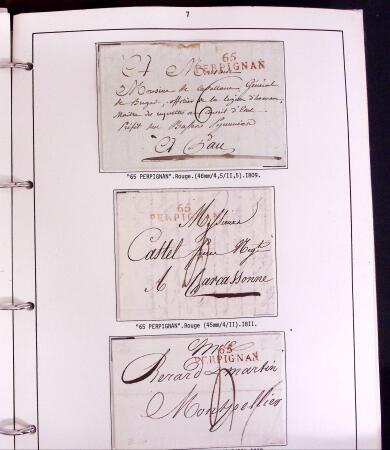 7
A Monsieur
65
PERPIGNAN
Monsieur de Général
de officier de la légion d'honneur,
Maître des requêtes au Conseil d'Etat
Préfet des Basses Pyrénées
A Pau
"65 PERPIGNAN".Rouge.(46mm/4,5/II,5).I809.
65
PERPIGNAN
Messieurs
Castel
A Carcassonne
"65 PERPIGNAN".Rouge (45mm/4/II).I8II.
65
PERPIGNAN
Berard martin
Montpellier